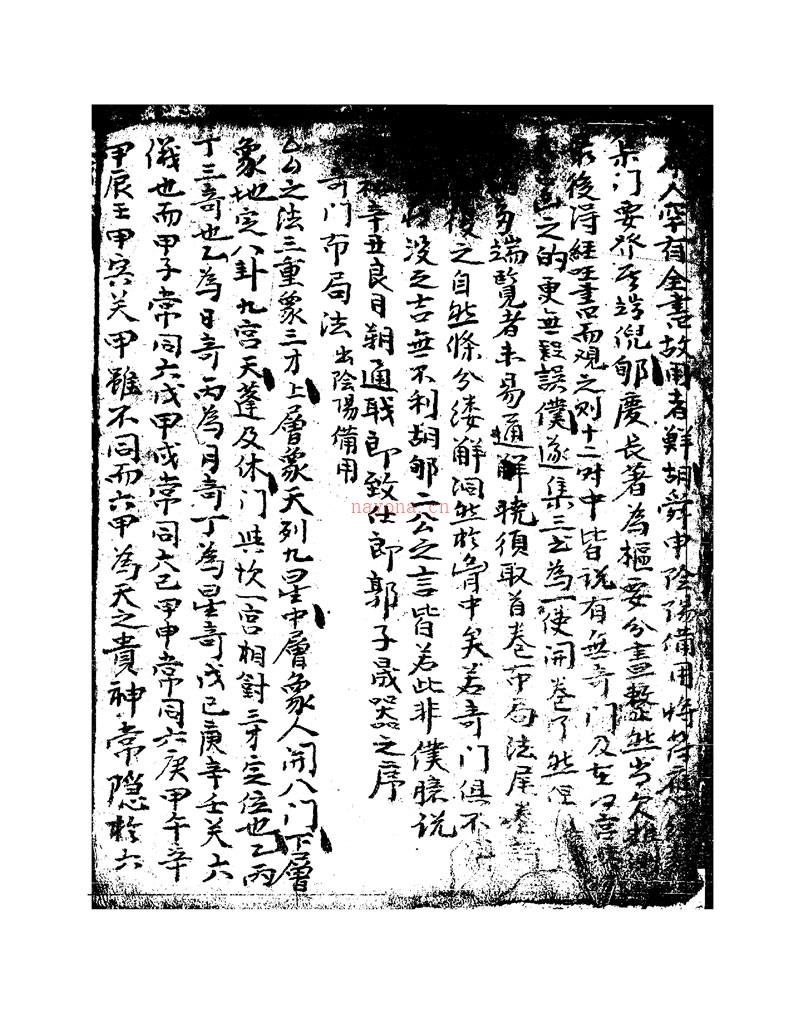 人罕有全書故用者鮮胡舜申陰陽備用將符應經
門要終至端倪郇慶長著為樞要分畫整然尚欠推測
最後得經里書而观之则十二时中皆说有無奇门及在
之的更無疑誤僕遂集三书為一使開卷了然但
多端覽者未易通解曉須取首卷布局法尾卷
後之自然條分缕解洞然於胷中矣若奇门俱不
没之吉無不利胡郇二公之言皆若此非僕臆说
辛丑良月朝通戢郎致仕郎郭子晟器之序
奇门布局法出陰陽備用
公之法三重象三才上層象天列九星中層象人開八门下層
象地定八卦九宫天蓬及休门與坎一宫相對三才定位也乙丙
丁三奇也乙為日奇丙為月奇丁為星奇戊己庚辛壬关六
儀也而甲子常同六戊甲戌常同六己甲申常同六庚甲午辛
甲辰壬甲寅关甲雖不同而六甲為天之貴神常隐於六
nayona.cn